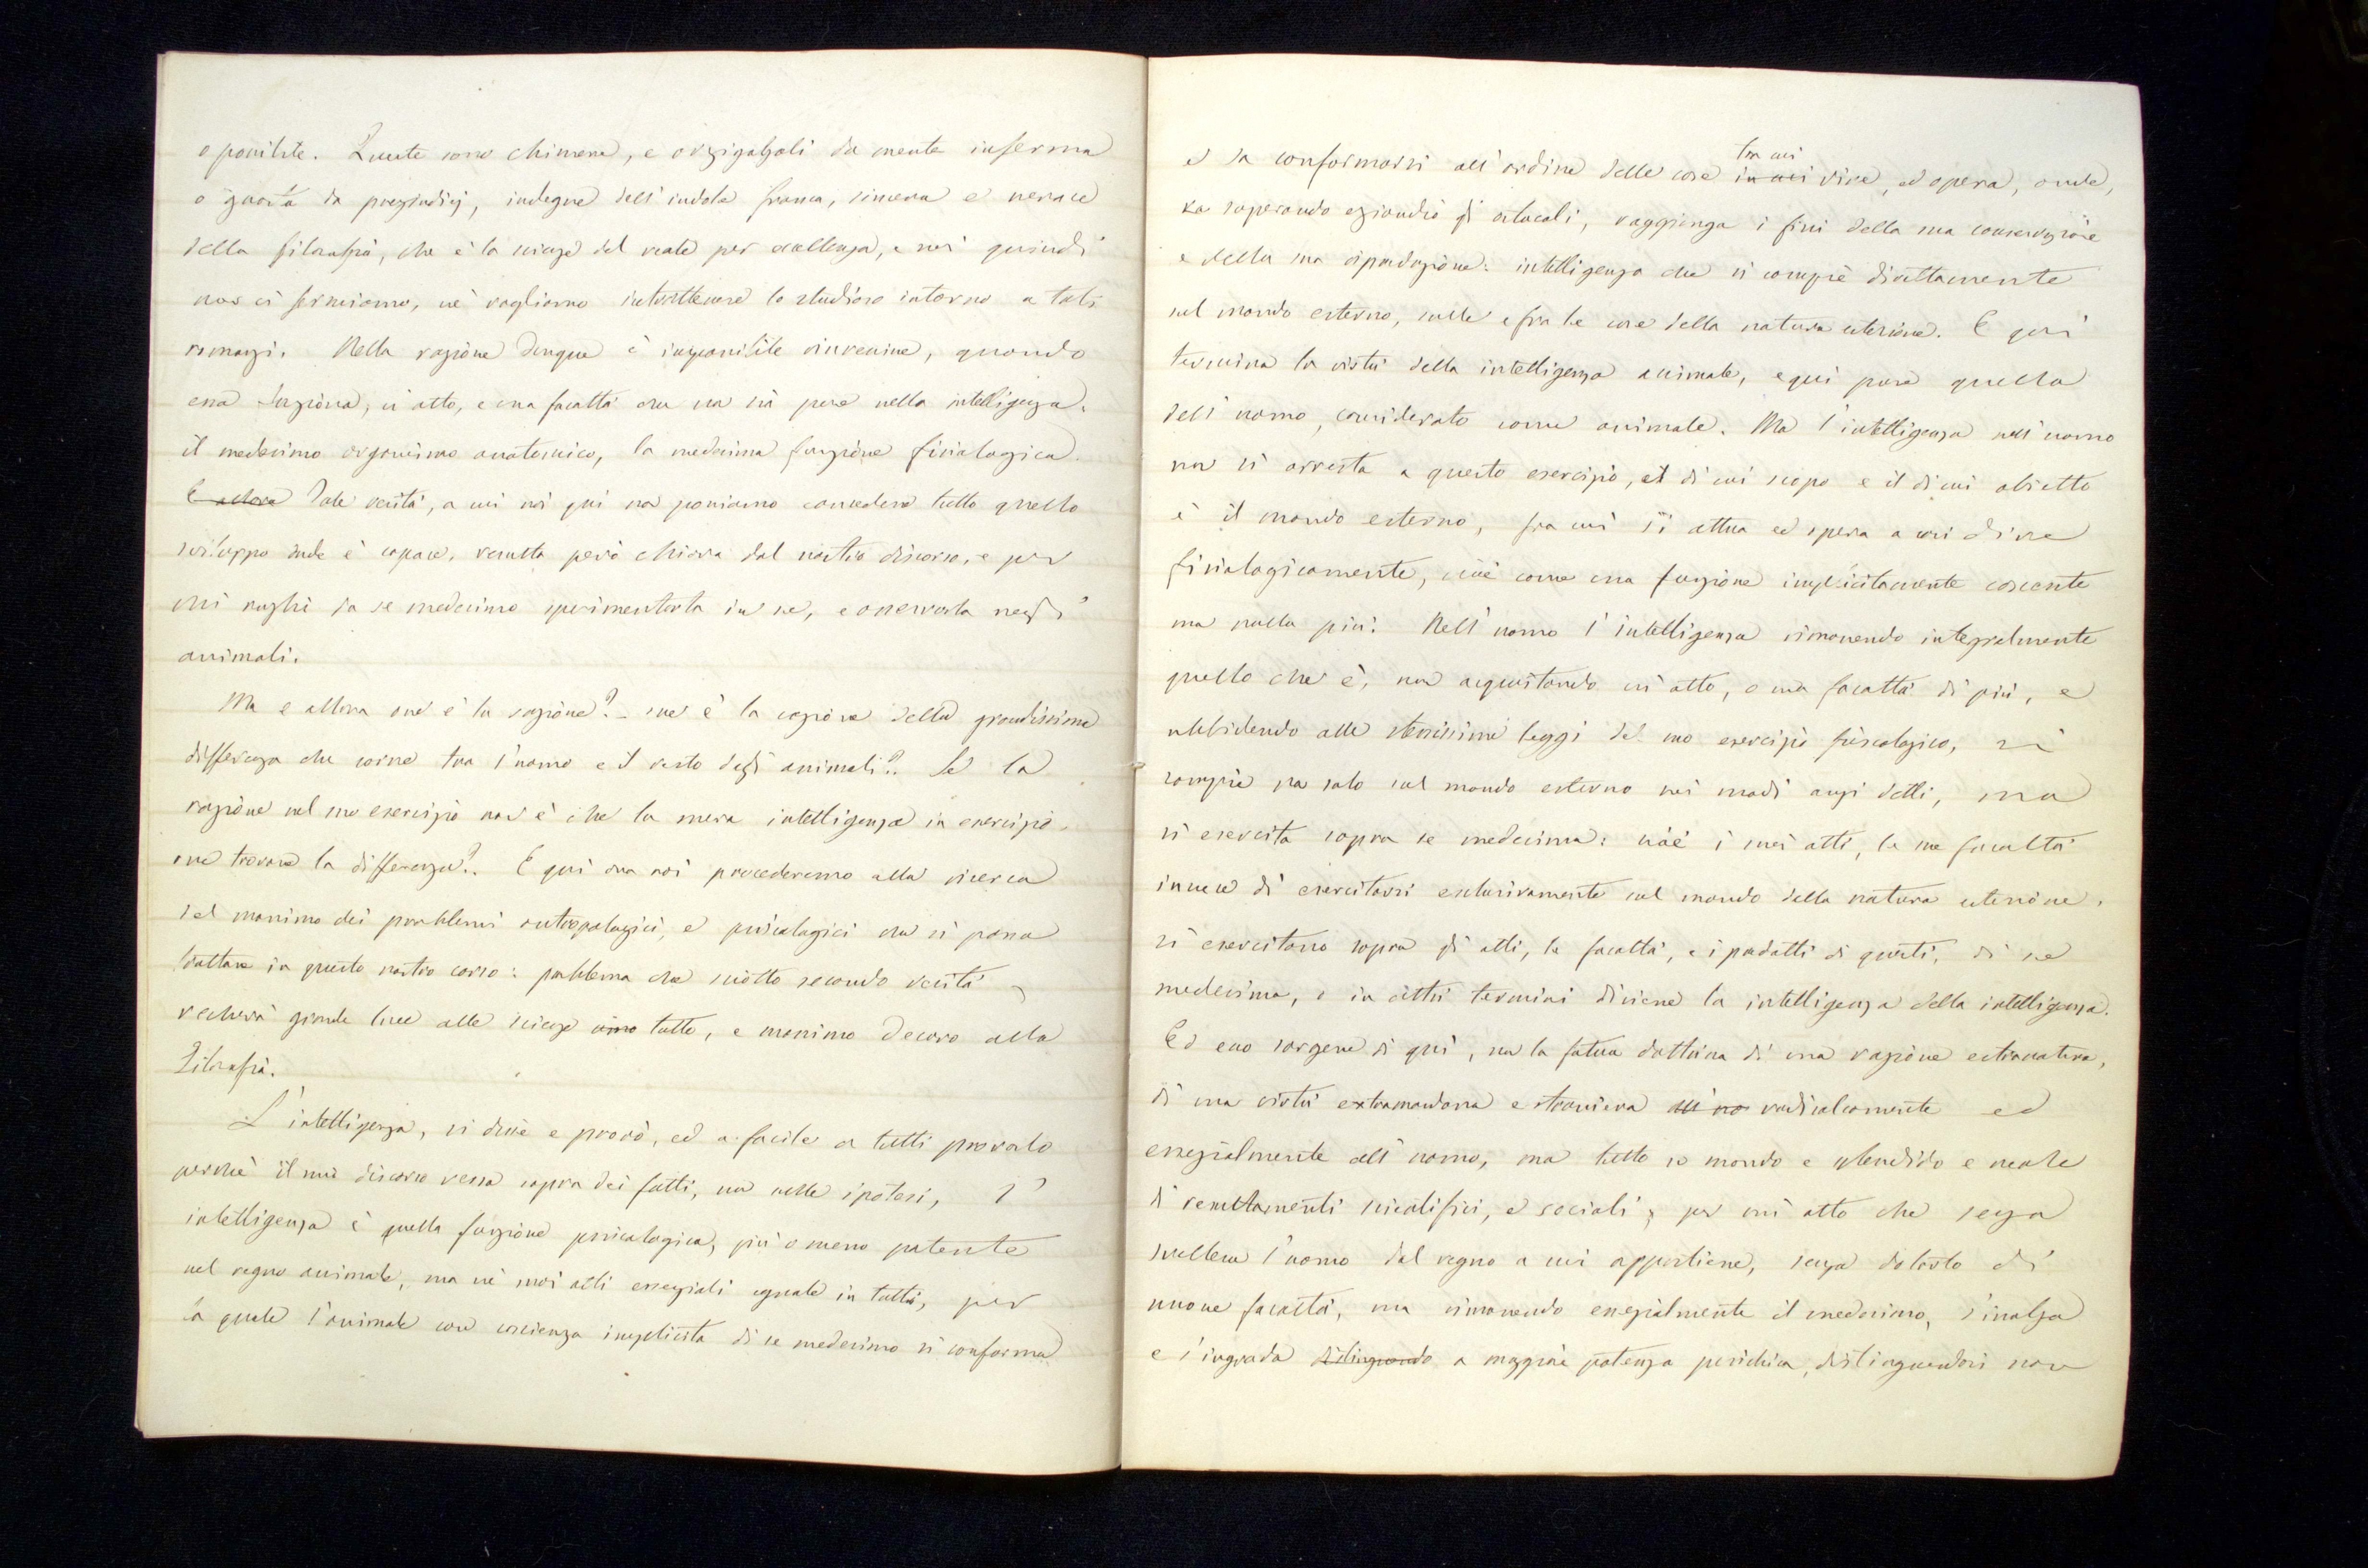 o possibile. Queste sono chimere, e arzigogoli da mente inferma
o guasta da pregiudizj, indegne dell'indole franca, sincera e verace
della filosofia, che è la scienza del reale per eccellenza, e noi quindi
non ci fermiamo, nè vogliamo intrattenere lo studioso intorno a tali
romanzi. Nella ragione dunque è impossibile rinvenire, quando
essa funziona, un atto, e una facoltà che non sia pure nella intelligenza:
il medesimo organismo anatomico, la medesima funzione fisiologica.
E allora Tale verità, a cui noi qui non possiamo concedere tutto quello
sviluppo onde è capace, risulta però chiara dal nostro discorso, e per
chi voglia da se medesimo sperimentarla in se, e osservarla negli
animali.
Ma e allora ove è la ragione? - ove è la cagione della grandissima
differenza che corre tra l'uomo e il resto degli animali? Se la
ragione nel suo esercizio non è che la mera intelligenza in esercizio,
ove trovare la differenza? E qui ora noi procederemo alla ricerca
del massimo dei problemi antropologici, e psicologici che si possa
trattare in questo nostro corso: problema che sciolto secondo verità
recherà grande luce alle scienze tutte, e massimo decoro alla
Filosofia.
L'intelligenza, si disse e provò, ed è facile a tutti provarlo
perchè il mio discorso versa sopra dei fatti, non nelle ipotesi, l'
intelligenza è quella funzione psicologica, più o meno potente
nel regno animale, ma ne' suoi atti essenziali uguale in tutti, per
la quale l'animale con coscienza implicita di se medesimo si conforma
e sa conformarsi all'ordine delle cose in cui tra cui vive, ed opera, onde,
superando eziandio gli ostacoli, raggiunga i fini della sua conservazione
e della sua riproduzione: intelligenza che si compie direttamente
nel mondo esterno, sulle e fra le cose della natura esteriore. E qui
termina la virtù della intelligenza animale, e qui pure quella
dell'uomo, considerato come animale. Ma l'intelligenza nell'uomo
non si arresta a questo esercizio, il di cui scopo e il di cui obietto
è il mondo esterno, fra cui si attua ed opera a così dire
fisiologicamente, cioè come una funzione implicitamente cosciente
ma nulla più. Nell'uomo l'intelligenza rimanendo integralmente
quello che è, non acquistando un atto, o una facoltà di più, e
ubbidendo alle stessissime leggi del suo esercizio fisiologico, si
compie non solo sul mondo esterno nei modi anzi detti, ma
si esercita sopra se medesima: cioè i suoi atti, le sue facoltà
invece di esercitarsi esclusivamente sul mondo della natura esteriore,
si esercitano sopra gli atti, le facoltà, e i prodotti di questi, di se
medesima, e in altri termini diviene la intelligenza della intelligenza.
Ed ecco sorgere di qui, non la fatua dottrina di una ragione estranatura,
di una virtù extramondana e straniera radicalmente ed
essenzialmente all'uomo, ma tutto un mondo e splendido e reale
di resultamenti scientifici, e sociali; per cui atto che senza
svellere l'uomo dal regno a cui appartiene, senza dotarlo di
nuove facoltà, ma rimanendo essenzialmente il medesimo, s'inalza
e s'ingrada distinguendo a maggiore potenza psichica, distinguendosi non